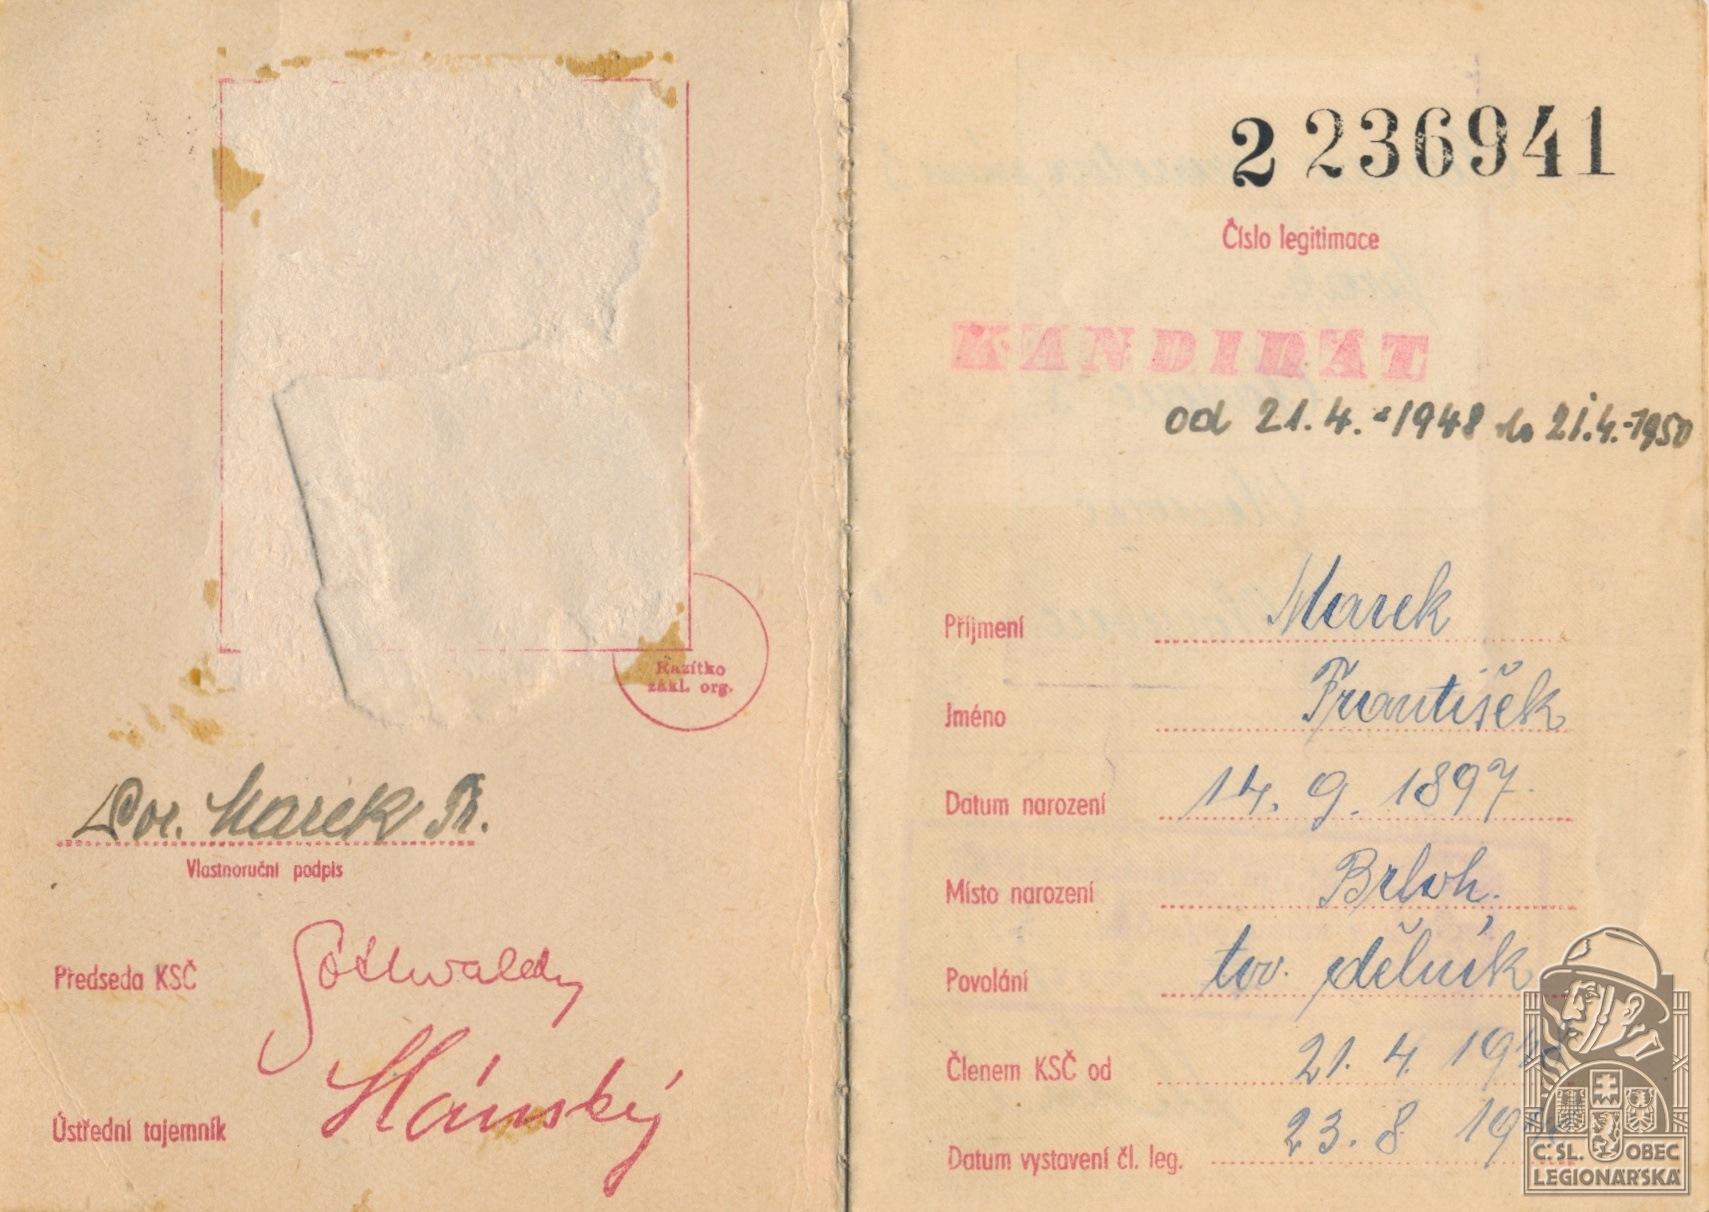 Razítko
zákl. org.
Marek Fr.
Vlastnoruční podpis
Předseda KSČ
Gottwald
Ústřední tajemník
Slánský
2236941
Číslo legitimace
KANDIDÁT
od 21.4.-1948 do 21.4.-1950
Příjmení Marek
Jméno František
Datum narození 14. 9. 1897.
Místo narození Brloh.
Povolání tov. dělník
Členem KSČ od 21. 4. 1948
Datum vystavení čl. leg. 23. 8. 19
Č. SL. OBEC
LEGIONÁŘSKÁ